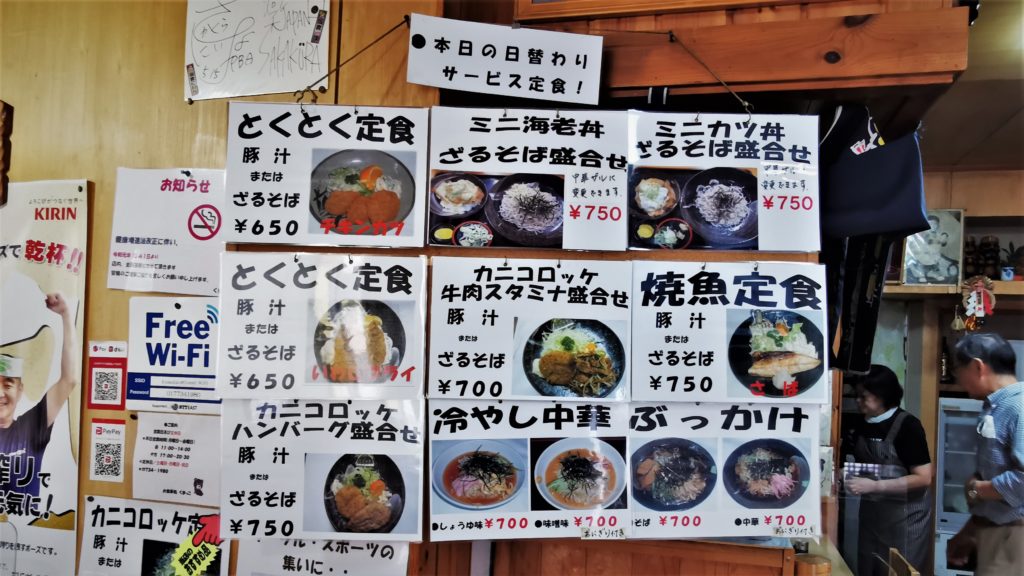 本日の日替わり
サービス定食！
とくとく定食
豚汁
または
ざるそば
￥650
チキンカツ
ミニ海老丼
ざるそば盛合せ
中華ザルに
変更できます
￥750
ミニカツ丼
ざるそば盛合せ
中華ザルに
変更できます
￥750
とくとく定食
豚汁
または
ざるそば
￥650
カニコロッケ
牛肉スタミナ盛合せ
豚汁
または
ざるそば
￥700
焼魚定食
豚汁
または
ざるそば
￥750
さば
カニコロッケ
ハンバーグ盛合せ
豚汁
または
ざるそば
￥750
冷やし中華
●しょうゆ味￥700
●味噌味￥700
おにぎり付き
ぶっかけ
そば￥700
●中華￥700
おにぎり付き
お知らせ
健康増進法改正に伴い、
Free
Wi-Fi
SSID
Password
PayPay
KIRIN
乾杯!!
カニコロッケ定
豚汁
または
ル・スポーツの
集いに・・
JAPAN